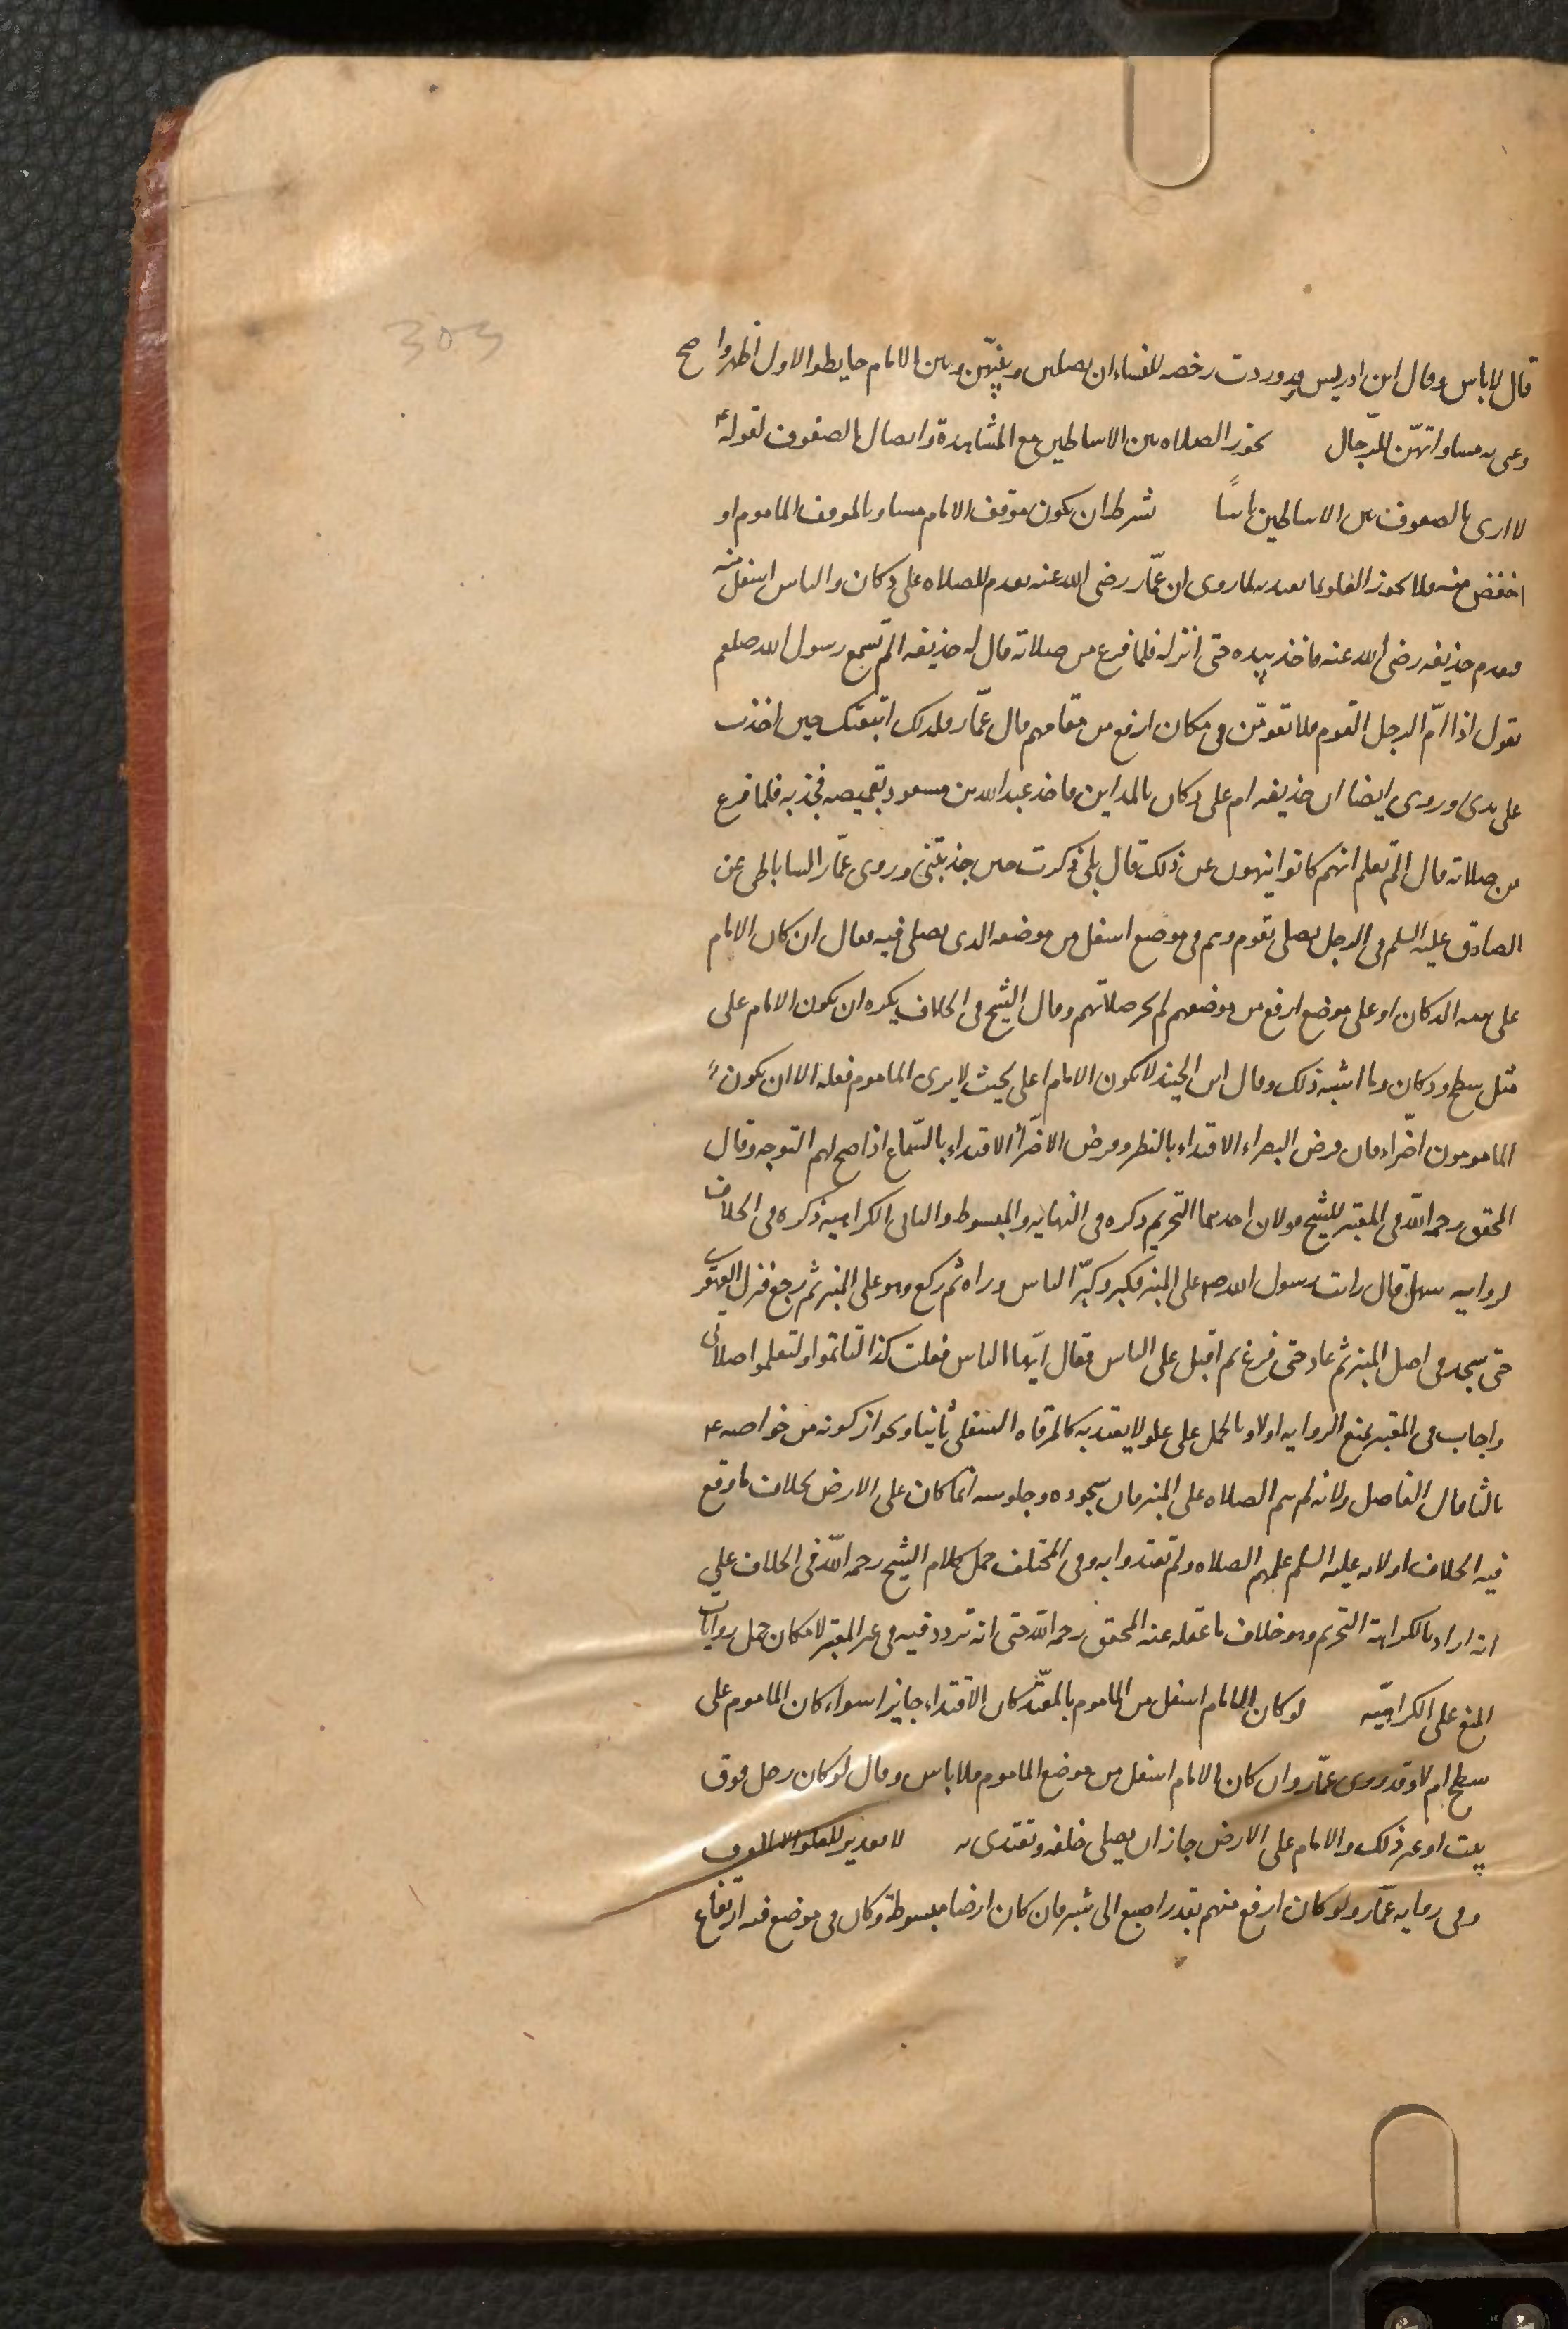 303
قال لا باس وقال ابن ادريس وقد وردت رخصه للنساء ان يصلين وبينهن وبين الامام حايط والاول اظهر واصح
وعنى به مساواتهنّ للرّجال يجوز الصلاه بين الاساطين مع المشاهدة واتصال الصفوف لقوله ع
لا ارى بالصفوف بين الاساطين باسًا يشترط ان يكون موقف الامام مساويا لموقف الماموم او
اخفض منه فلا يجوز العلو بما يعتد به لما روى ان عمّار رضى الله عنه تقدم للصلاه على دكان والناس اسفل منه
فتقدم حذيفه رضى الله عنه فاخذ بيده حتى انزله فلما فرغ من صلاته قال له حذيفه الم تسمع رسول الله صلعم
يقول اذا امّ الرجل القوم فلا تقومنّ فى مكان ارفع من مقامهم قال عمّار فلذلك اتبعتك حين اخذت
على يدى وروى ايضا ان حذيفه ام على دكان بالمداين فاخذ عبد الله بن مسعود بقميصه فجذبه فلما فرغ
من صلاته قال الم تعلم انهم كانوا ينهون عن ذلك قال بلى ذكرت حين جذبتنى وروى عمّار الساباطى عن
الصادق عليه السلم فى الرجل يصلى بقوم وهم فى موضع اسفل من موضعه الذى يصلى فيه فقال ان كان الامام
على شبه الدكان او على موضع ارفع من موضعهم لم يجز صلاتهم وقال الشيخ فى الخلاف يكره ان يكون الامام على
مثل سطح ودكان وما اشبه ذلك وقال ابن الجنيد لا يكون الامام اعلى بحيث لا يرى الماموم فعله الا ان يكون
المامومون اضرّاء فان فرض البصراء الاقتداء بالنظر وفرض الاضرّاء الاقتداء بالسّماع اذا صح لهم التوجه وقال
المحقق رحمه الله فى المعتبر للشيخ قولان احدهما التحريم ذكره فى النهايه والمبسوط والثانى الكراهيه ذكره فى الخلاف
لروايه سهل قال رايت رسول الله صم على المنبر فكبر وكبّر الناس وراه ثم ركع وهو على المنبر ثم رجع فنزل القهقرى
حتى سجد فى اصل المنبر ثم عاد حتى فرغ ثم اقبل على الناس فقال ايّها الناس فعلت كذا لتاتموا ولتعلموا صلاتى
واجاب فى المعتبر بمنع الروايه اولا وبالحمل على علو لا يعتد به كالمرقاه السفلى ثانيا وبجواز كونه من خواصه ع
ثالثا قال الفاضل ولانه لم يتم الصلاه على المنبر فان سجوده وجلوسه انما كان على الارض بخلاف ما وقع
فيه الخلاف او لانه عليه السلم علمهم الصلاه ولم يقتدوا به وفى المختلف حمل كلام الشيخ رحمه الله فى الخلاف على
انه اراد بالكراهة التحريم وهو خلاف ما نقله عنه المحقق رحمه الله حتى انه تردد فيه فى غير المعتبر لامكان حمل روايات
المنع على الكراهيّه لو كان الامام اسفل من الماموم بالمعتدّ كان الاقتداء جايزا سواء كان الماموم على
سطح ام لا وقد روى عمّار وان كان الامام اسفل من موضع الماموم فلا باس وقال لو كان رجل فوق
بيت او غير ذلك والامام على الارض جاز ان يصلى خلفه ويقتدى به لا تقدير للعلو الا بالعرف
وفى روايه عمّار ولو كان ارفع منهم بقدر اصبع الى شبر فان كان ارضا مبسوطة وكان فى موضع فيه ارتفاع